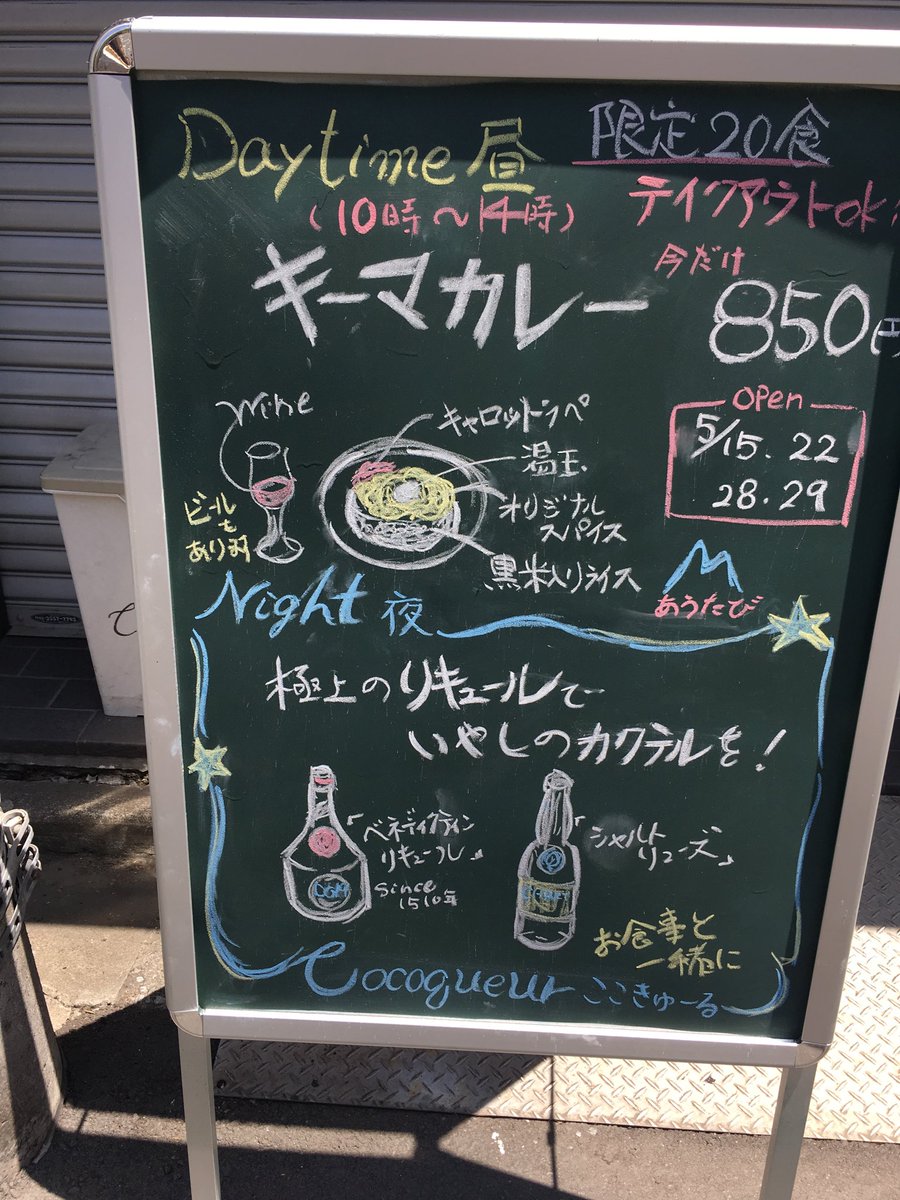 Daytime 昼
限定20食
(10時〜14時)
テイクアウトok
キーマカレー
今だけ
850円
wine
ビールも
あります
キャロットラペ
温玉
オリジナル
スパイス
黒米入りライス
OPen
5/15.22
28.29
M
あうたび
Night 夜
極上のリキュールで
いやしのカクテルを!
「ベネディクティン
リキュール」
since
1510年
DOM
「シャルト
リューズ」
お食事と
一緒に
Cocoqueur ここきゅーる